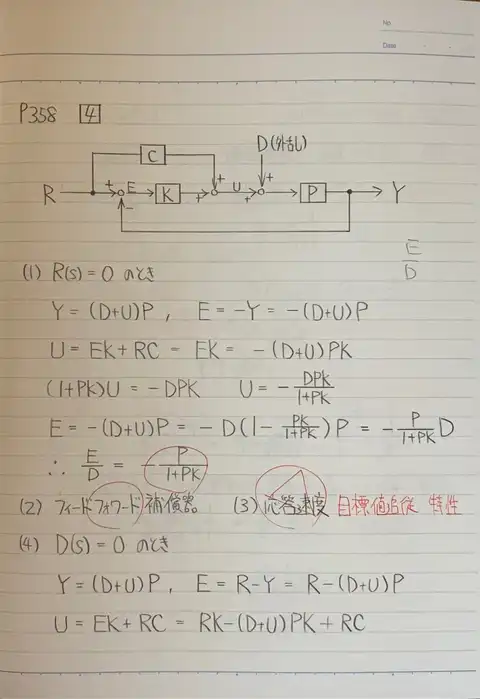 No
Date
P358 4
C
D(外乱)
R + E K + + U + + P Y
-
E/D
(1) R(s) = 0 のとき
Y = (D+U)P , E = -Y = -(D+U)P
U = EK + RC = EK = -(D+U)PK
(1+PK)U = -DPK U = - DPK/1+PK
E = -(D+U)P = -D(1 - PK/1+PK)P = - P/1+PK D
∴ E/D = - P/1+PK
(2) フィードフォワード補償器 (3) 応答速度 目標値追従 特性
(4) D(s) = 0 のとき
Y = (D+U)P , E = R-Y = R-(D+U)P
U = EK + RC = RK-(D+U)PK + RC